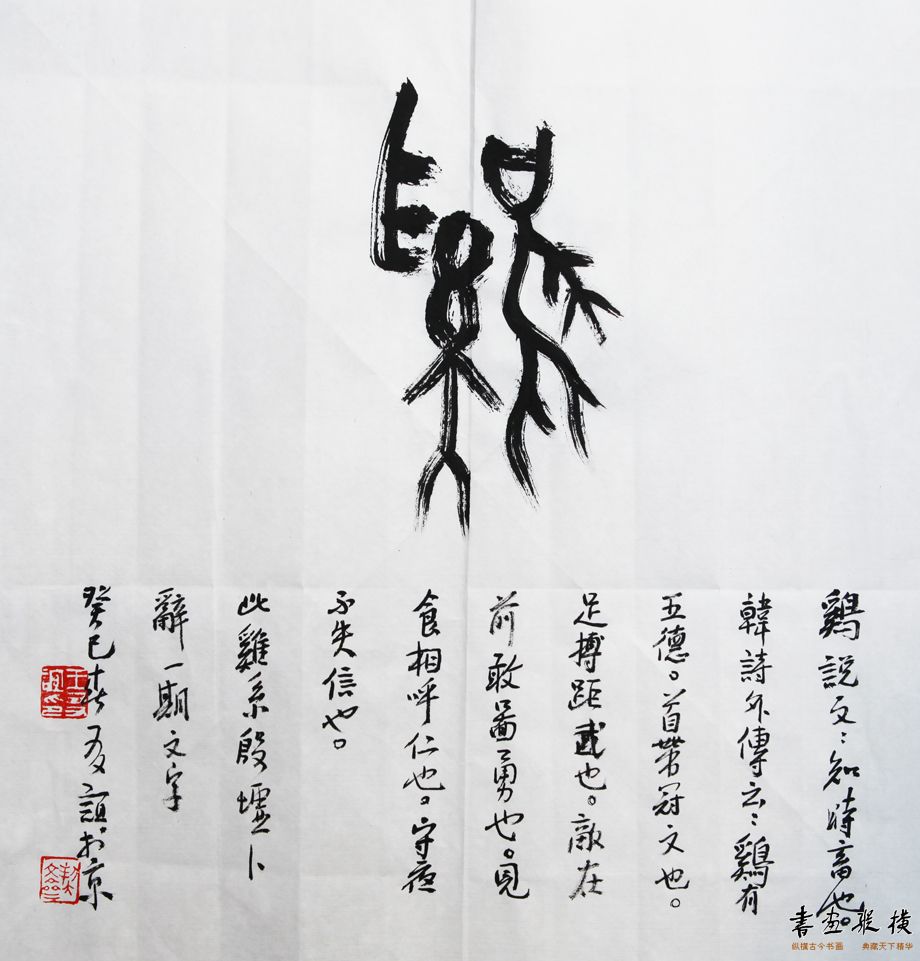 鷄
鷄說文:知時畜也。
韓詩外傳云:鷄有
五德。首帶冠文也。
足搏距武也。敵在
前敢啚勇也。見
食相呼仁也。守夜
不失信也。
此雞系殷墟卜
辭一期文字
癸巳春友誼於京
書畫縱橫
纵横古今书画 典藏天下精华